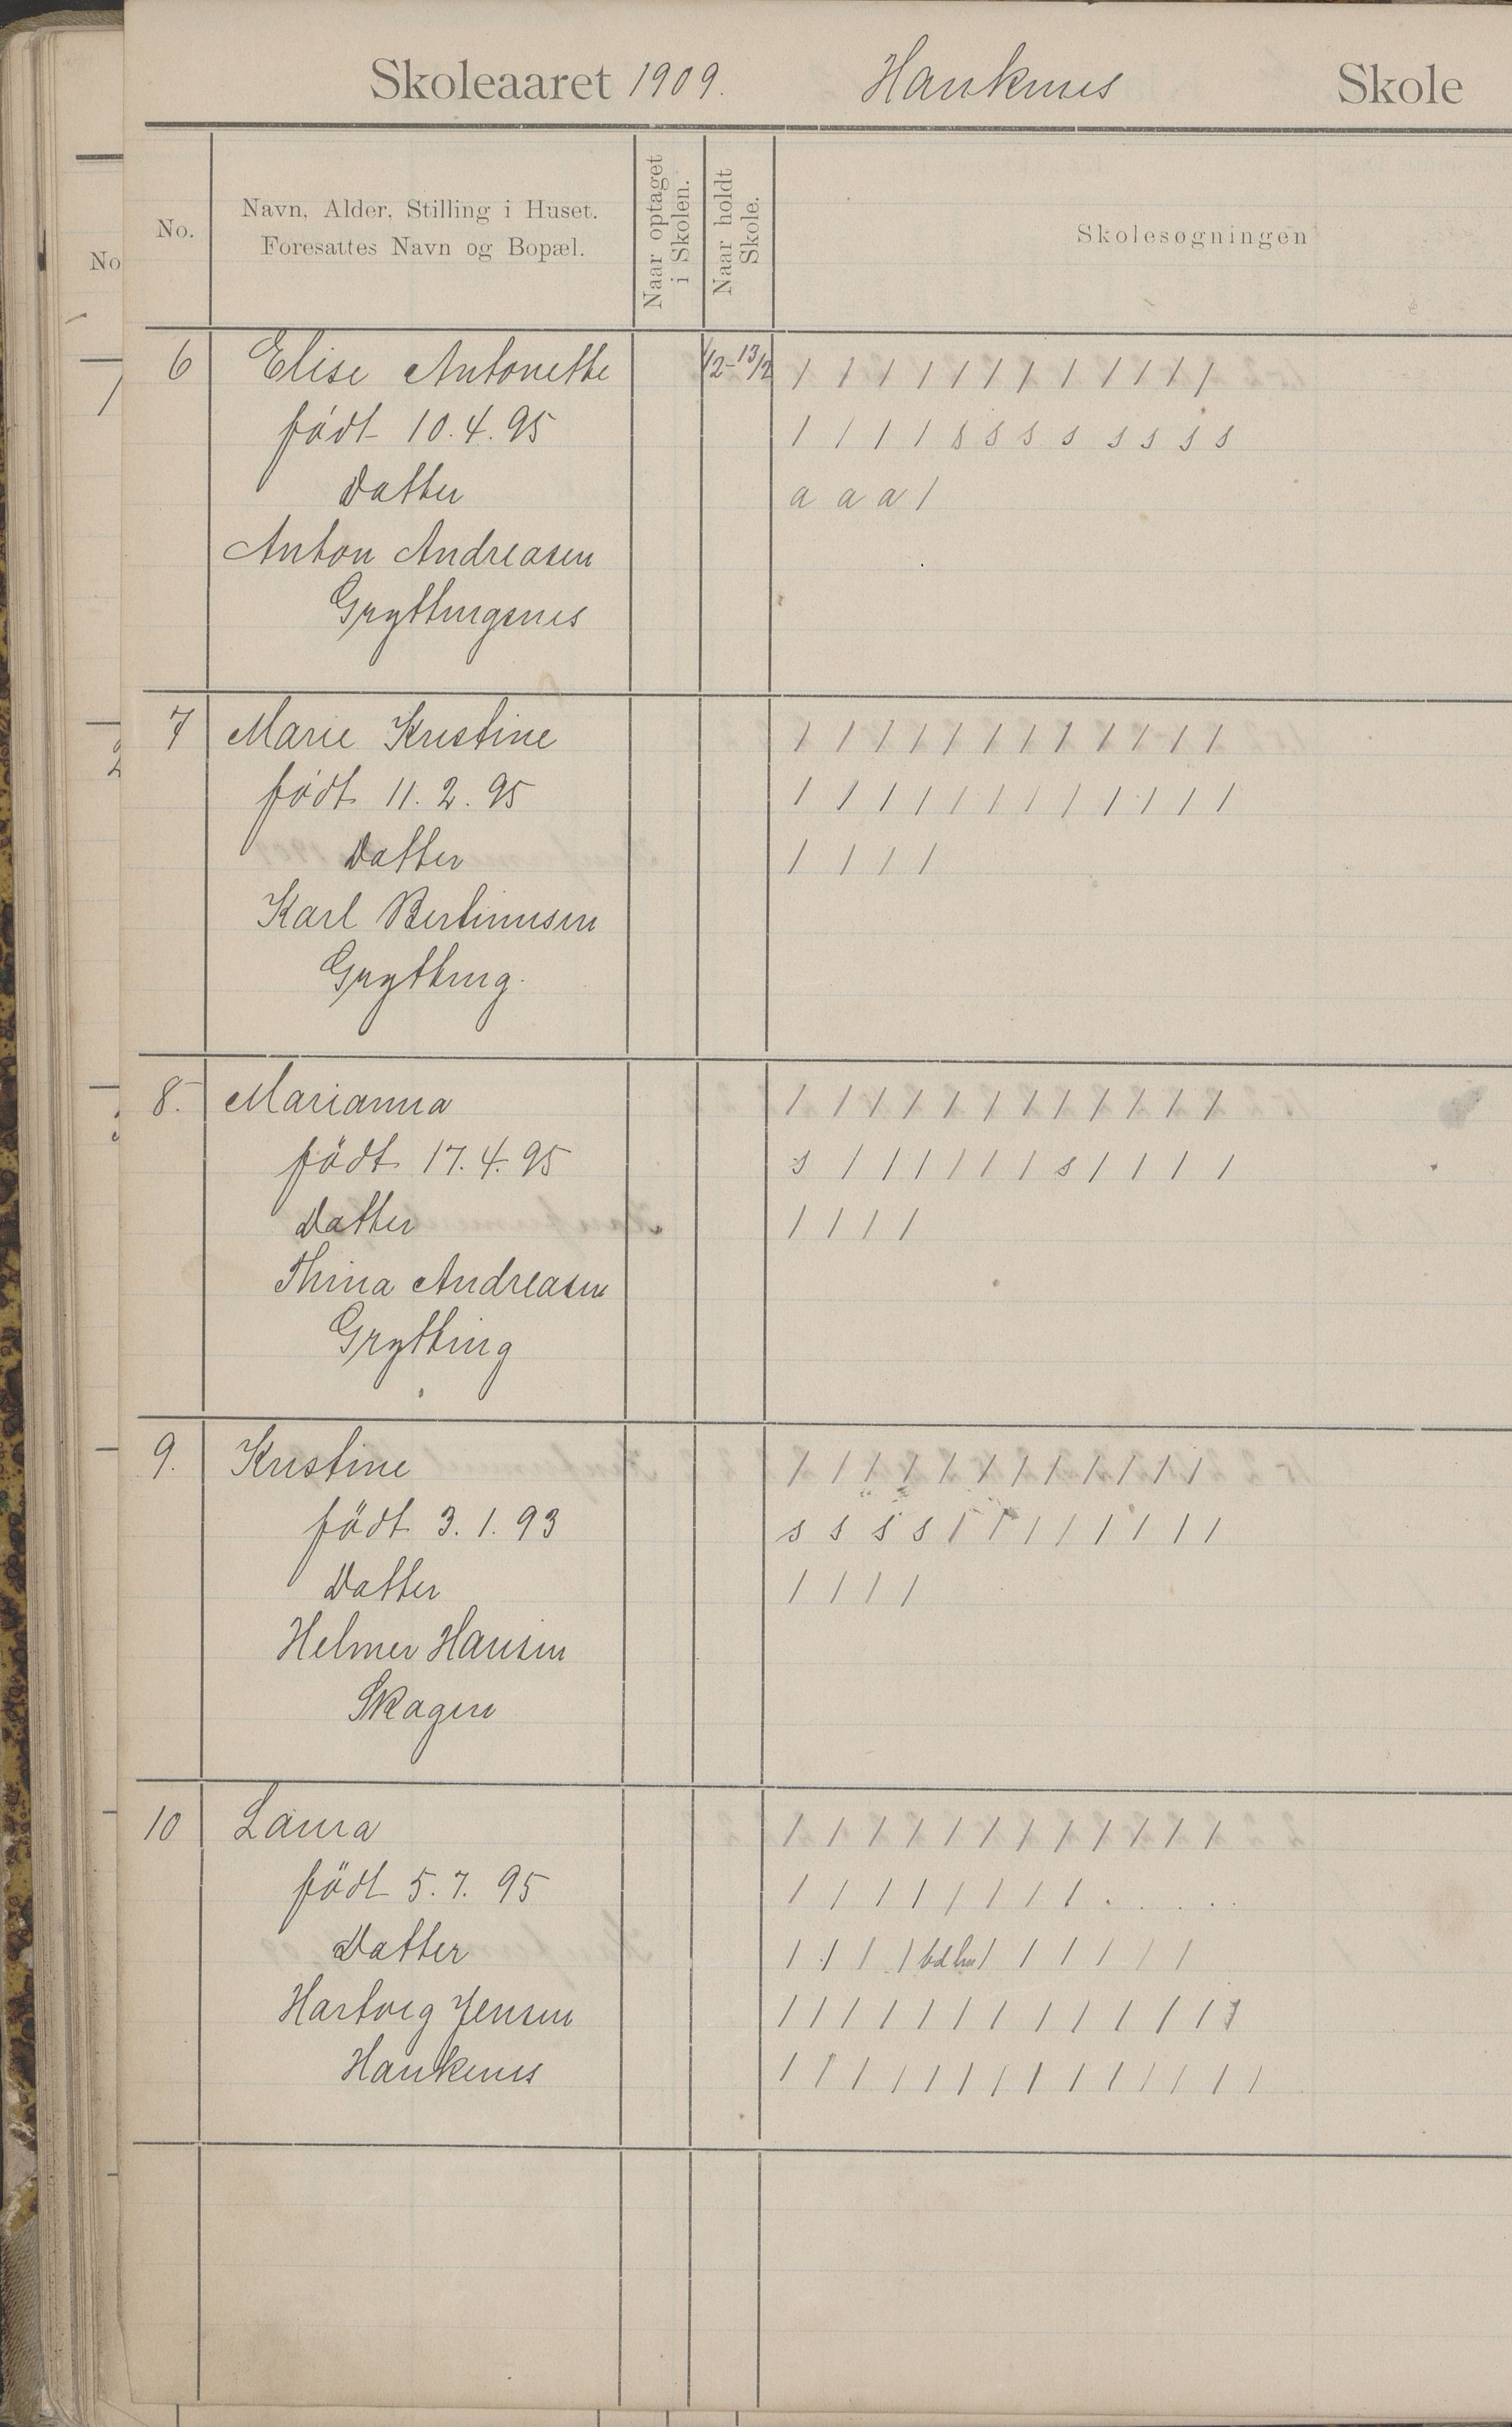 Skoleaaret 1909. Hauknes Skole
No. Navn, Alder, Stilling i Huset. Foresattes Navn og Bopæl. Naar optaget i Skolen. Naar holdt Skole. Skolesøgningen
6 Elise Antonette 1/2-13/2 / / / / / / / / / / / /
født 10.4.95 / / / / s s s s s s s s
Datter a a a /
Anton Andreasen
Gryttingsnes
7 Marie Kristine / / / / / / / / / / / /
født 11.2.95 / / / / / / / / / / / /
Datter / / / /
Karl Bertinusen
Grytting.
8. Marianna / / / / / / / / / / / /
født 17.4.95 s / / / / / / s / / / /
Datter / / / /
Thina Andreasen
Grytting
9. Kristine / / / / / / / / / / / /
født 3.1.93 s s s s / / / / / / / /
Datter / / / /
Helmer Hansen
Skagen
10 Laura / / / / / / / / / / / /
født 5.7.95 / / / / / / / / . . . .
Datter / / / / / / / / / /
Hartvig Jensen / / / / / / / / / / / / /
Hauknes / / / / / / / / / / / / / /